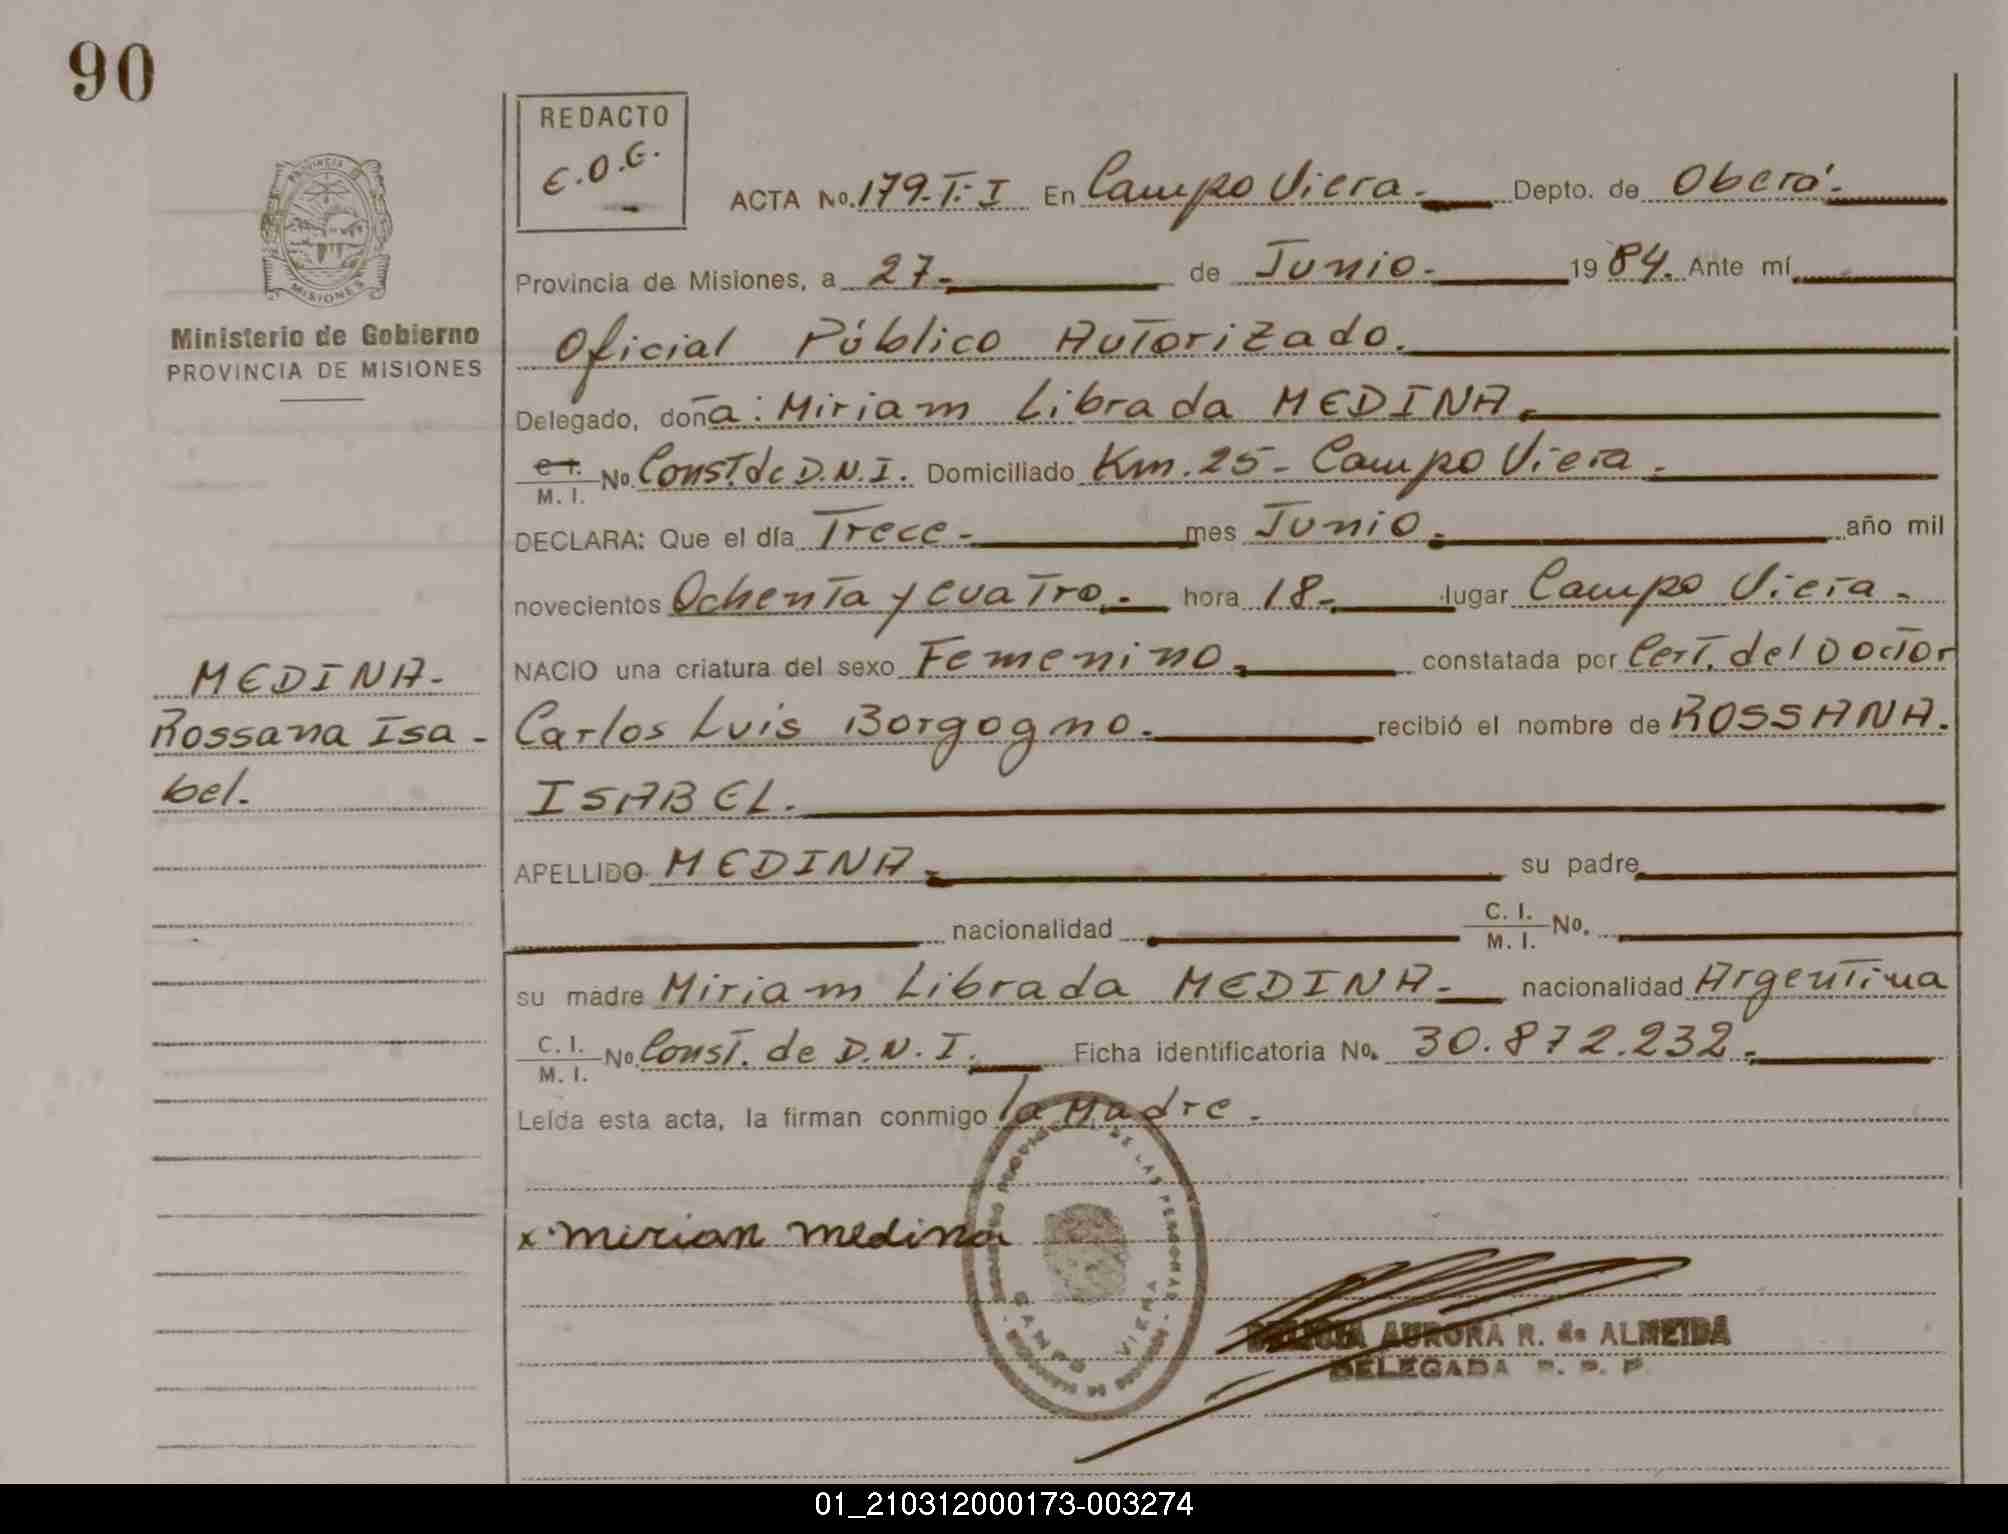 90
REDACTO
E.O.G.
PROVINCIA
MISIONES
Ministerio de Gobierno
PROVINCIA DE MISIONES
ACTA No. 179-T: I En Campo Viera.- Depto. de Oberá.-
Provincia de Misiones, a 27.- de Junio.- 1984. Ante mí
Oficial Público Autorizado.
Delegado, doña: Miriam Librada MEDINA.
C. I. / M. I. No. Const. de D.N.I. Domiciliado Km. 25- Campo Viera.-
DECLARA: Que el día Trece.- mes Junio.- año mil
novecientos Ochenta y cuatro.- hora 18.- lugar Campo Viera.-
NACIO una criatura del sexo Femenino.- constatada por Cert. del Doctor
Carlos Luis Borgogno.- recibió el nombre de ROSSANA.
ISABEL.
MEDINA-
Rossana Isa-
bel.
APELLIDO MEDINA.- su padre
nacionalidad C. I. / M. I. No.
su madre Miriam Librada MEDINA- nacionalidad Argentina
C. I. / M. I. No. Const. de D.N.I. Ficha identificatoria No. 30.872.232.-
Leída esta acta, la firman conmigo la Madre.-
x mirian medina
DE LAS PERSONAS
CAMPO VIERA
AURORA R. de ALMEIDA
DELEGADA R. P. P.
01_210312000173-003274